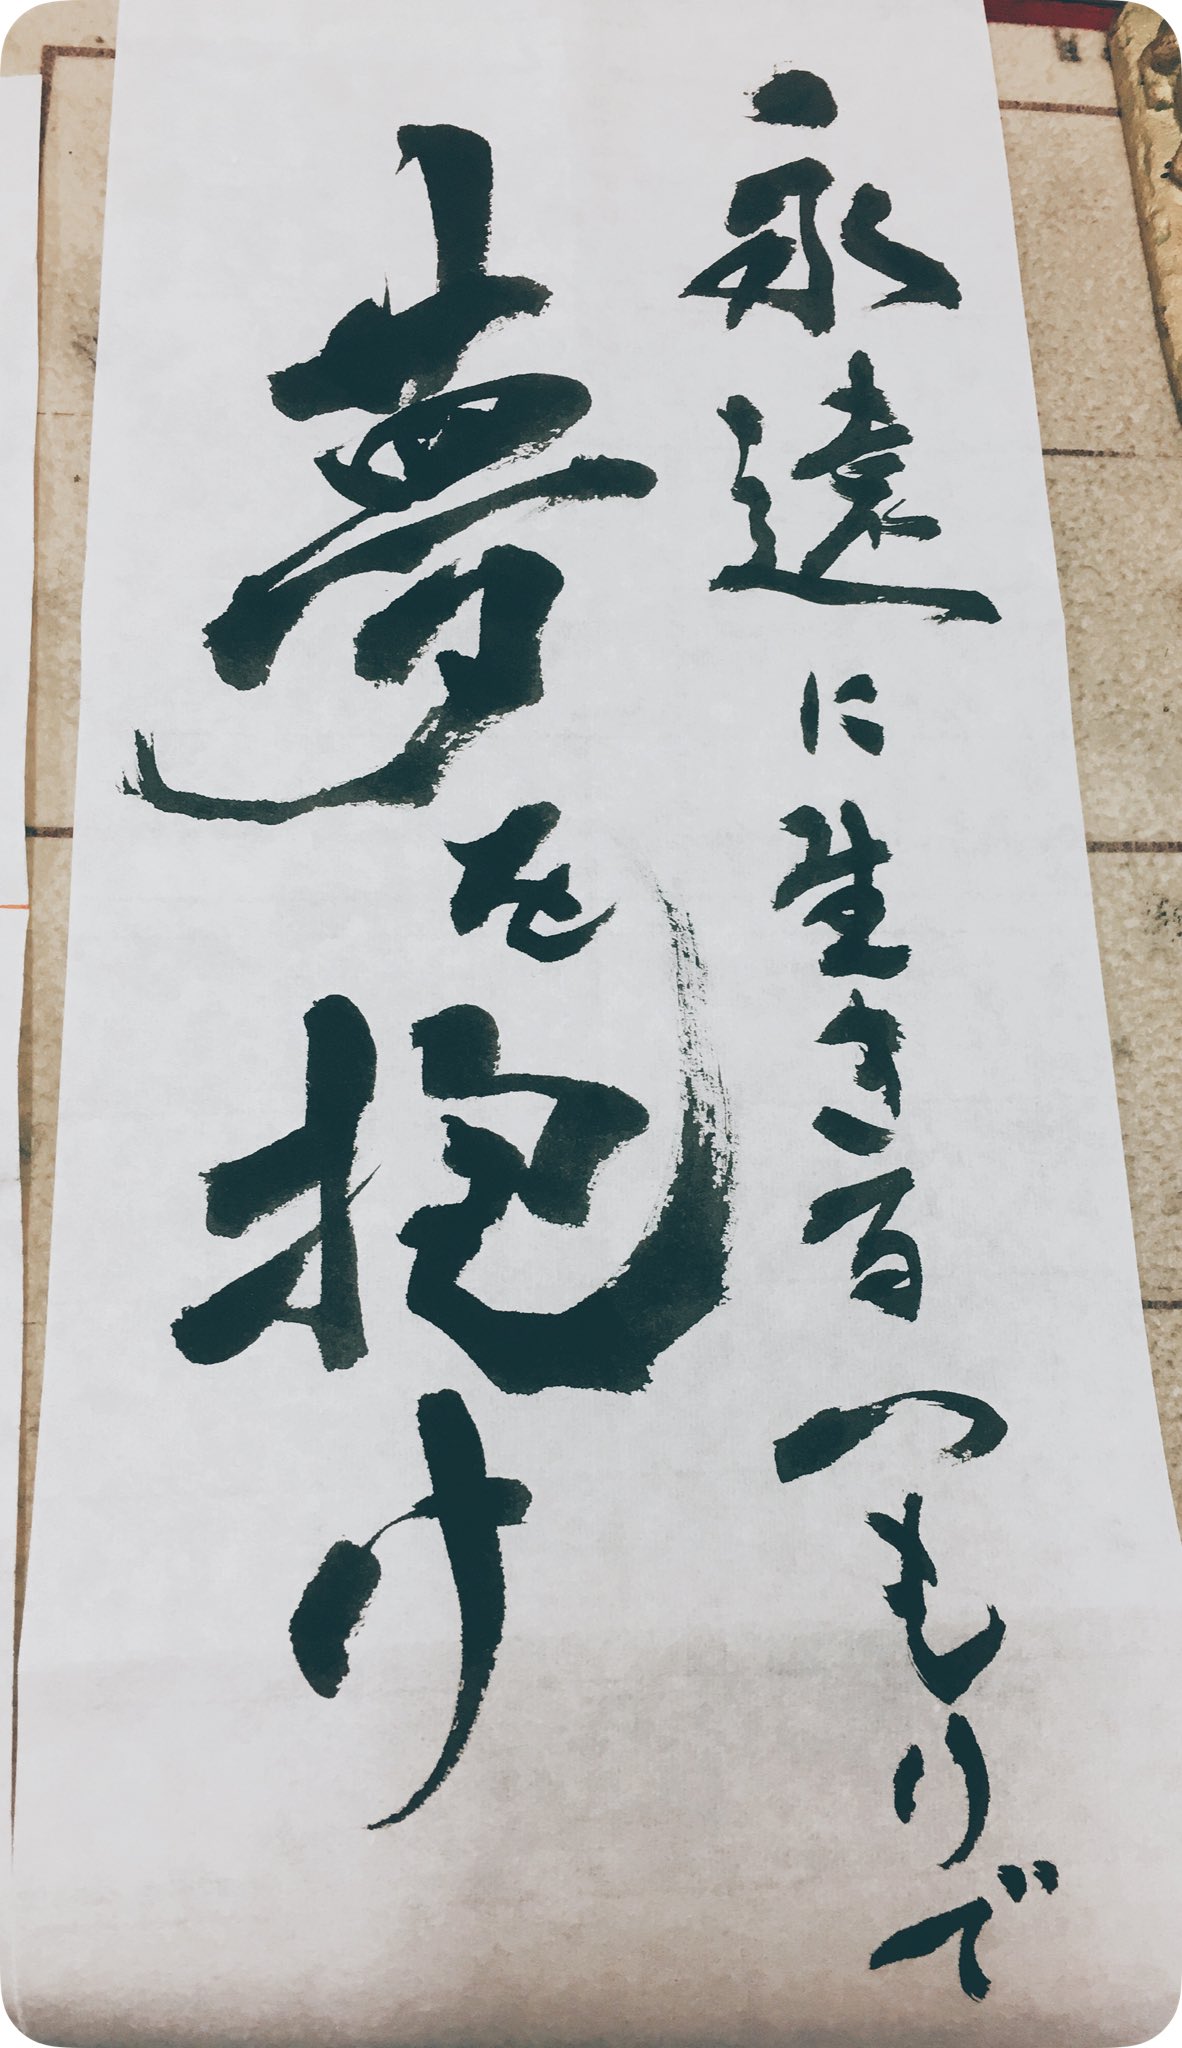 永遠に生きるつもりで
夢を抱け